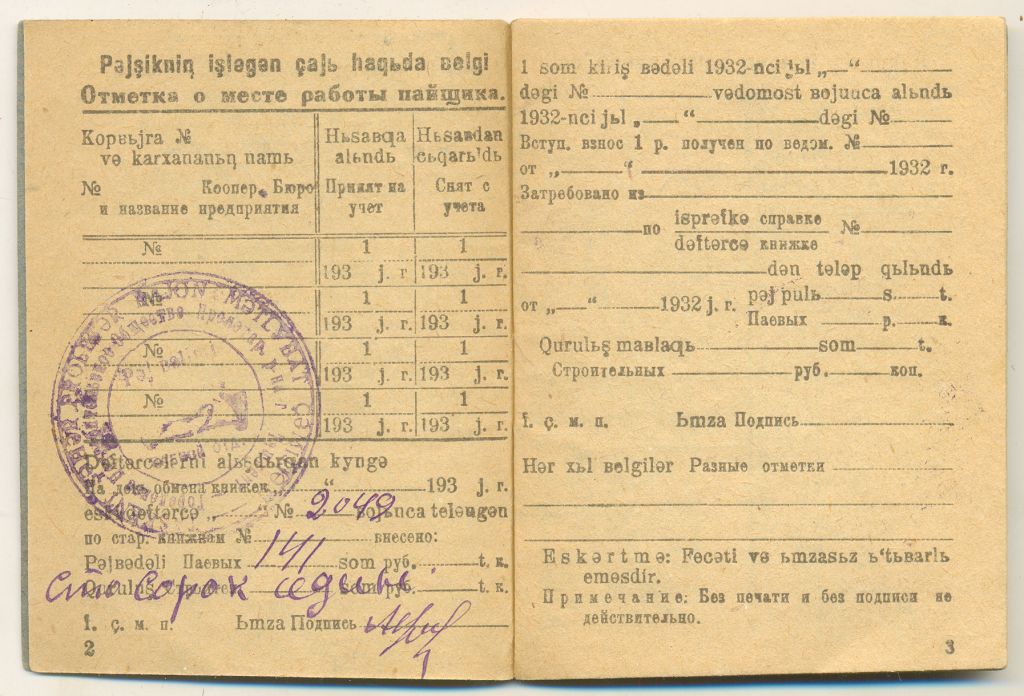 Pəjşikniꞑ işləgən çajь haqьda ʙelgi
Отметка о месте работы пайщика.
Корвьjra №
və karxananьꞑ namь
Hьsaʙqa
alьndь
Hьsaʙdan
cьqarь'dь
№ Коопер. Бюро
и название предприятия
Принят на
учет
Снят с
учета
№ 1 1
193 j. г. 193 j. г.
№ 1 1
193 j. г. 193 j. г.
№ 1 1
193 j. г. 193 j. г.
№ 1 1
193 j. г. 193 j. г.
kyngə
На день обмена книжек „ “ 193 j. г.
eski dəftərcə „ “ № 2049 ʙojьnca tələngən
по стар. книжкам № внесено:
Pəjʙədəli Паевых 141 som руб. t. к.
Quruluş som руб. t. к.
сто сорок
ı. ç. м. п. Ьmza Подпись
2
1 som kiriş ʙədəli 1932-nci jьl „ “
dəgi № vədomost ʙojunca alьndь
1932-nci jьl „ “ dəgi №
Вступ. взнос 1 р. получен по ведом. №
от „ “ 1932 г.
Затребовано из
по ispraſkə справке №
dəftərcə книжке
dən tələp qьlьndь
от „ “ 1932 j. г. pəj pulь s. t.
Паевых р. к.
Quruluş maʙlaqь som t.
Строительных руб. коп.
ı. ç. м. п. Ьmza Подпись
Hər xьl ʙelgilər Разные отметки
Eskərtmə: Fecəti və ьmzasьz ь'tьʙarlь
eməsdir.
Примечание: Без печати и без подписи не
действительно.
3